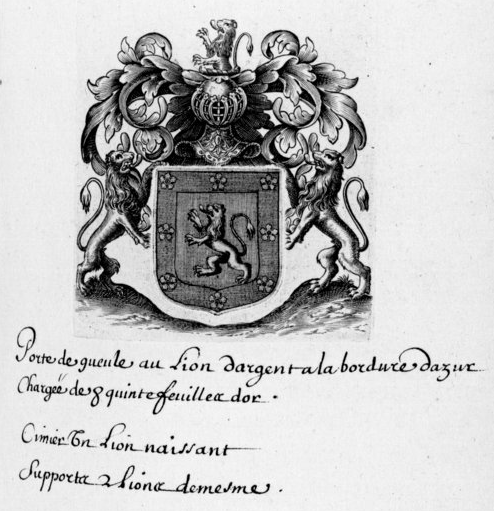 Porte de gueule au Lion dargent a la bordure dazur
Chargeë de 8 quintefeuilles dor .
Cimier Un Lion naissant
Supports 2 Lions demesme .